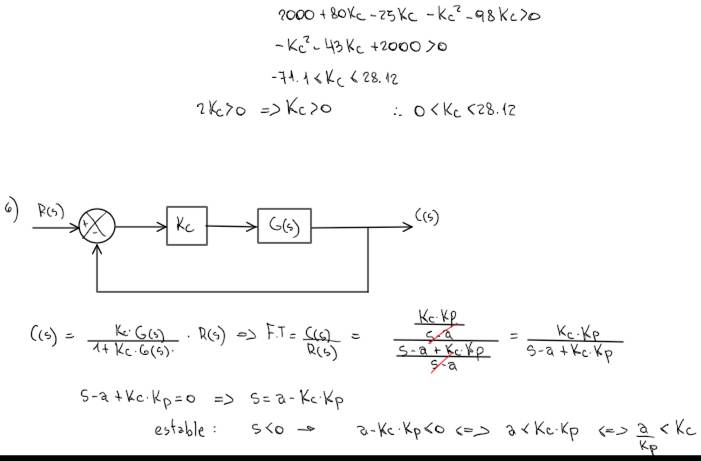 2000 + 80Kc - 25Kc - Kc² - 98Kc > 0
- Kc² - 43Kc + 2000 > 0
-71.1 < Kc < 28.12
2Kc > 0 => Kc > 0 ∴ 0 < Kc < 28.12
6) R(s) + - Kc G(s) C(s)
C(s) = Kc·G(s) / 1 + Kc·G(s) · R(s) => F.T = C(s) / R(s) = Kc·Kp / s-a / s-a + Kc·Kp / s-a = Kc·Kp / s-a + Kc·Kp
s-a + Kc·Kp = 0 => s = a - Kc·Kp
estable: s < 0 → a - Kc·Kp < 0 <=> a < Kc·Kp <=> a / Kp < Kc